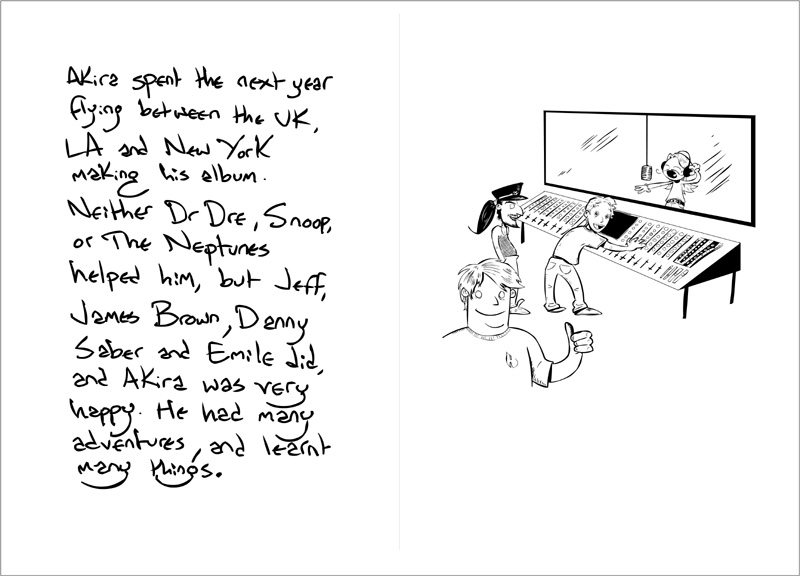 Akira spent the next year
flying between the UK,
LA and New York
making his album.
Neither Dr Dre, Snoop,
or The Neptunes
helped him, but Jeff,
James Brown, Danny
Saber and Emile did,
and Akira was very
happy. He had many
adventures, and learnt
many things.